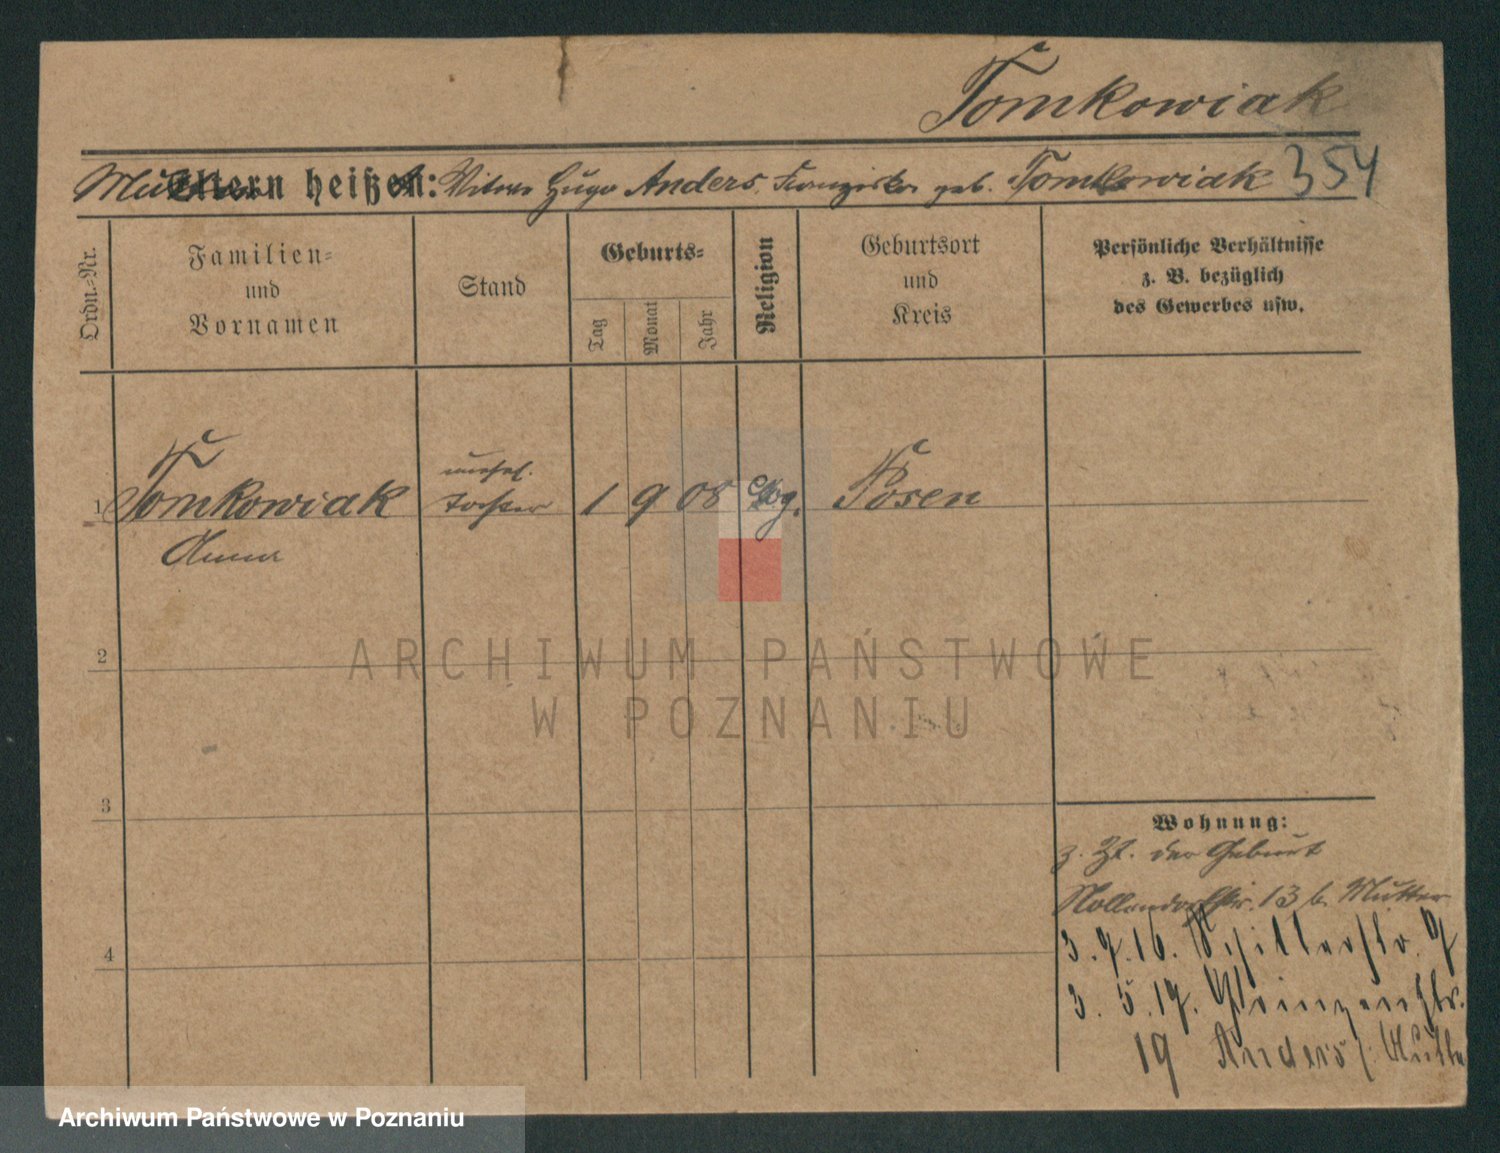 Tomkowiak
Mutter heißt: Witwe Hugo Anders, Franziska geb. Tomkowiak 354
Eltern heißen:
Ordn.-Nr.
Familien-
und
Vornamen
Stand
Geburts-
Tag
Monat
Jahr
Religion
Geburtsort
und
Kreis
Persönliche Verhältnisse
z. B. bezüglich
des Gewerbes usw.
unehel.
1 Tomkowiak Tochter 1 9 08 Posen
Anna
2
3
4
Wohnung:
z. Zt. der Geburt
Nollendorfstr. 13 b. Mutter
3.7.16. Schillerstr. 7
3.5.17. Prinzenstr.
19 Anders /: Mutter
ARCHIWUM PAŃSTWOWE
W POZNANIU
Archiwum Państwowe w Poznaniu